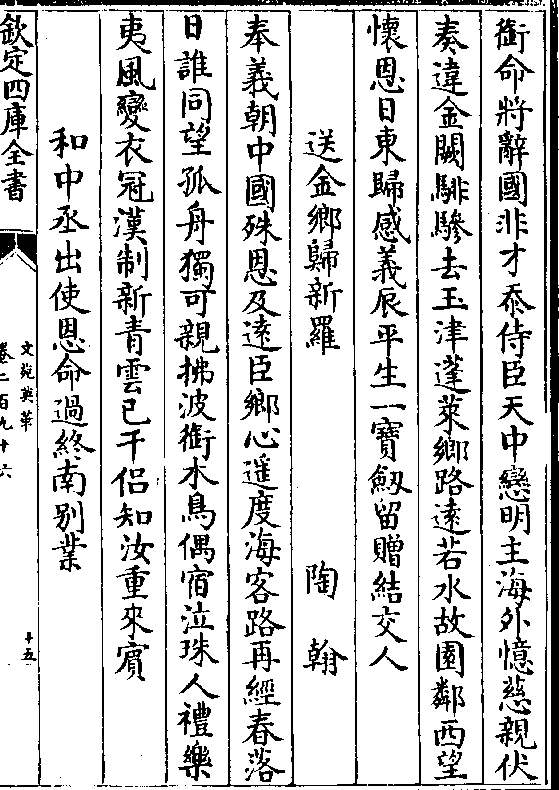 銜命將辭國非才忝侍臣天中戀明主海外憶慈親伏
奏違金闕騑驂去玉津蓬萊鄉路逺若水故園鄰西望
懷恩日東歸感義辰平生一寳劔留贈結交人
送金鄉歸新羅 陶翰
奉義朝中國殊恩及逺臣鄉心遥度海客路再經春落
日誰同望孤舟獨可親拂波銜木鳥偶宿泣珠人禮樂
夷風變衣冠漢制新青雲已干侣知汝重來賓
和中丞出使恩命過終南别業
欽定四庫全書
文苑英華
卷二百九十六
十五